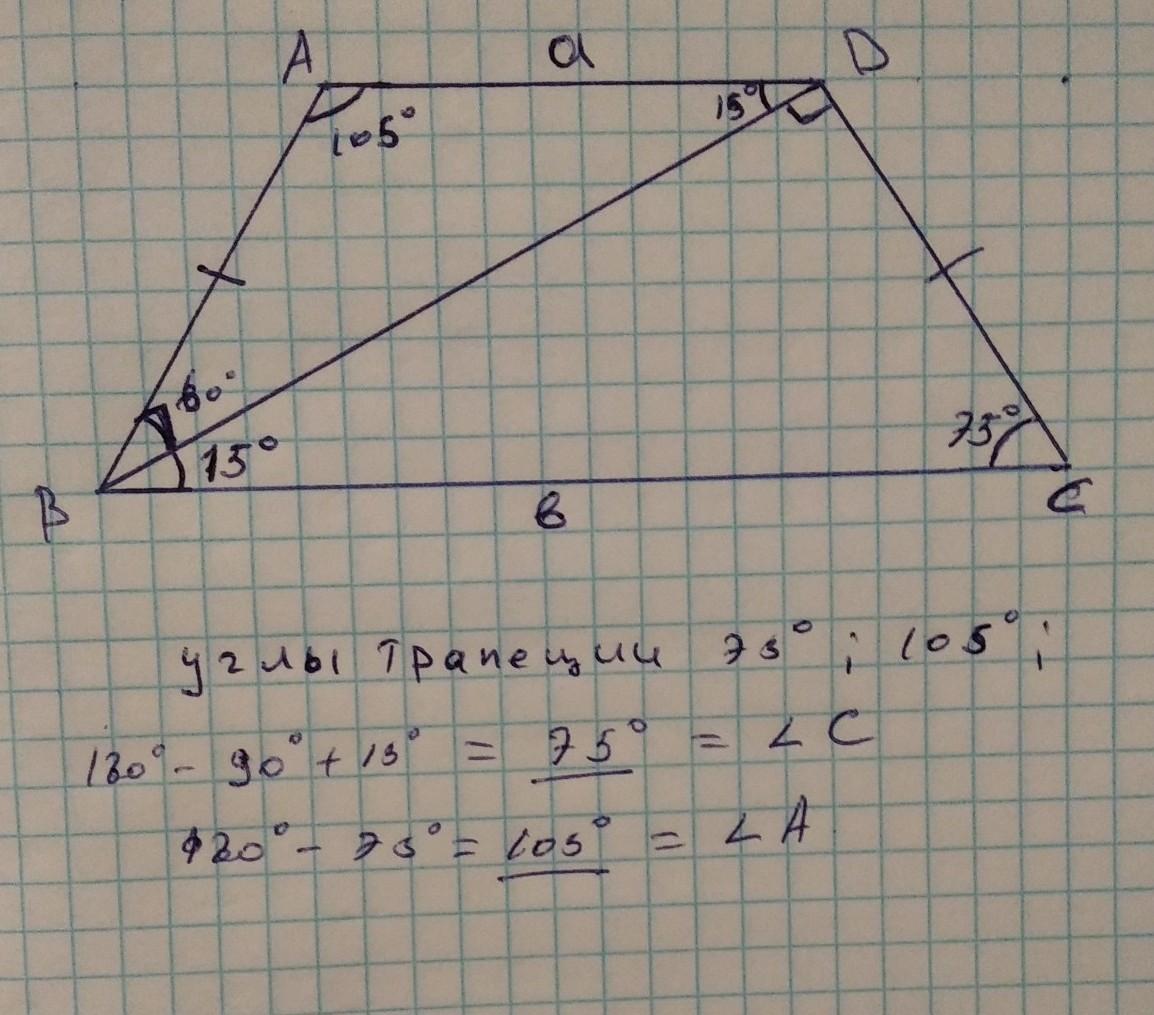 A a D
105° 15°
60°
15° 75°
B в C
углы трапеции 75° ; 105° ;
180° - 90° + 15° = 75° = ∠ C
180° - 75° = 105° = ∠ A